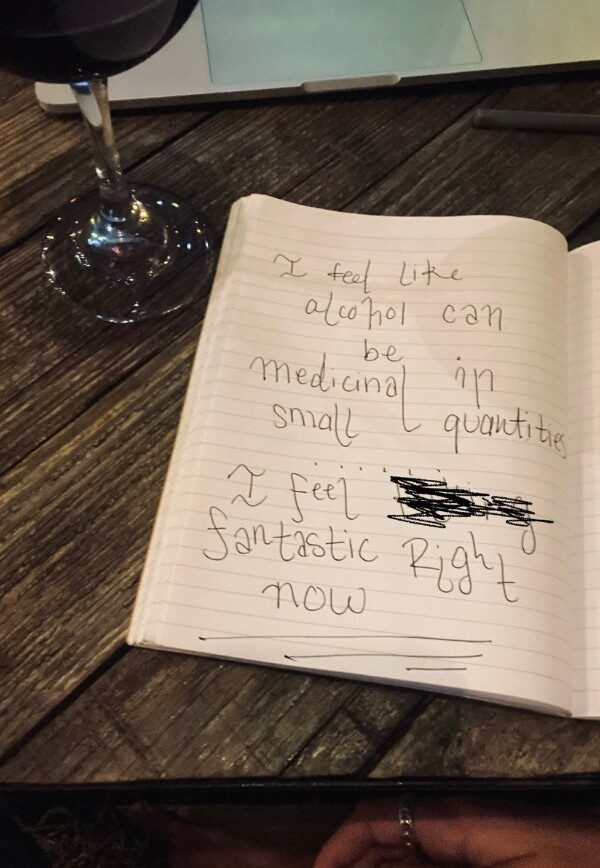 I feel like
alcohol can
be
medicinal in
small quantities
I feel
fantastic Right
now